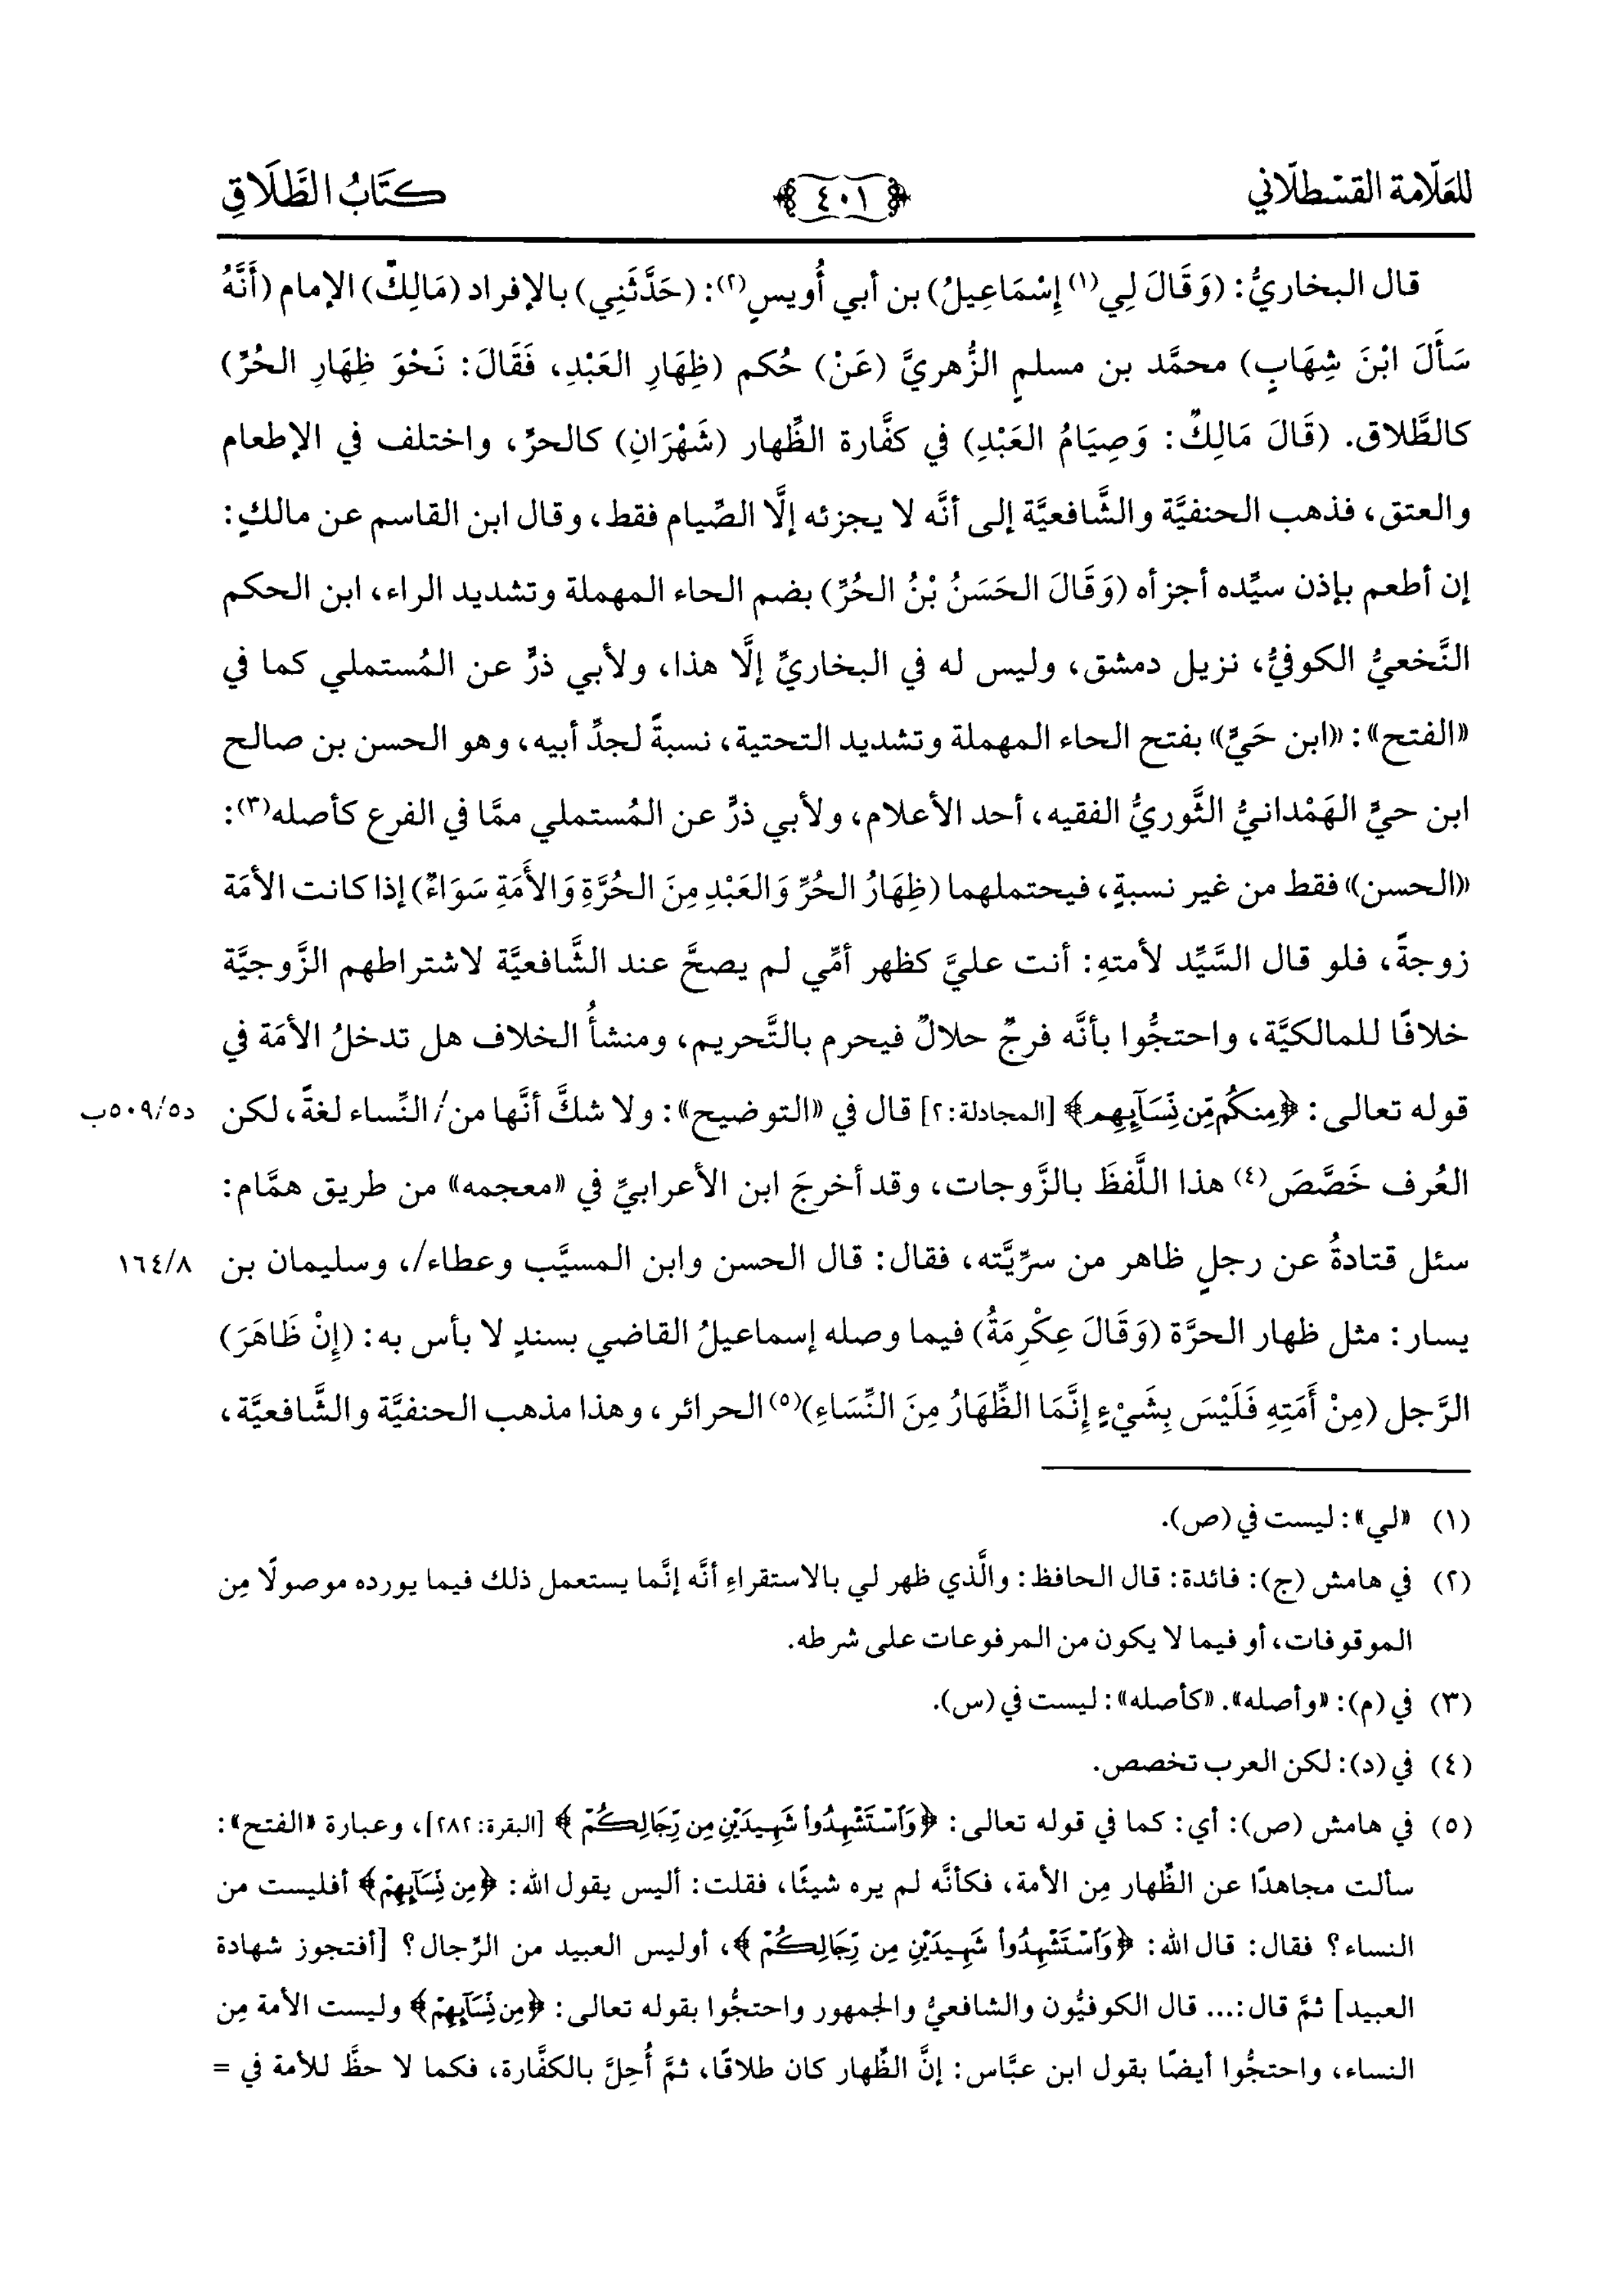 للعَلّامة القسْطلّاني
٤٠١
كتَابُ الطَّلَاقِ
قال البخاريُّ: (وَقَالَ لِي(١) إِسْمَاعِيلُ) بن أبي أُويسٍ(٢): (حَدَّثَنِي) بالإفراد (مَالِكٌ) الإمام (أَنَّهُ
سَأَلَ ابْنَ شِهَابٍ) محمَّد بن مسلمٍ الزُّهريَّ (عَنْ) حُكم (ظِهَارِ العَبْدِ، فَقَالَ: نَحْوَ ظِهَارِ الحُرِّ)
كالطَّلاق. (قَالَ مَالِكٌ: وَصِيَامُ العَبْدِ) في كفَّارة الظِّهار (شَهْرَانِ) كالحرِّ، واختلف في الإطعام
والعتق، فذهب الحنفيَّة والشَّافعيَّة إلى أنَّه لا يجزئه إلَّا الصِّيام فقط، وقال ابن القاسم عن مالكٍ:
إن أطعم بإذن سيِّده أجزأه (وَقَالَ الحَسَنُ بْنُ الحُرِّ) بضم الحاء المهملة وتشديد الراء، ابن الحكم
النَّخعيُّ الكوفيُّ، نزيل دمشق، وليس له في البخاريِّ إلَّا هذا، ولأبي ذرٍّ عن المُستملي كما في
«الفتح»: «ابن حَيٍّ» بفتح الحاء المهملة وتشديد التحتية، نسبةً لجدِّ أبيه، وهو الحسن بن صالح
ابن حيٍّ الهَمْدانيُّ الثَّوريُّ الفقيه، أحد الأعلام، ولأبي ذرٍّ عن المُستملي ممَّا في الفرع كأصله(٣):
«الحسن» فقط من غير نسبةٍ، فيحتملهما (ظِهَارُ الحُرِّ وَالعَبْدِ مِنَ الحُرَّةِ وَالأَمَةِ سَوَاءٌ) إذا كانت الأمَة
زوجةً، فلو قال السَّيِّد لأمتهِ: أنت عليَّ كظهر أمِّي لم يصحَّ عند الشَّافعيَّة لاشتراطهم الزَّوجيَّة
خلافًا للمالكيَّة، واحتجُّوا بأنَّه فرجٌ حلالٌ فيحرم بالتَّحريم، ومنشأُ الخلاف هل تدخلُ الأمَة في
قوله تعالى: ﴿مِنكُم مِّن نِّسَآئِهِم﴾ [المجادلة: ٢] قال في «التوضيح»: ولا شكَّ أنَّها من/ النِّساء لغةً، لكن
د٥٠٩/٥ب
العُرف خَصَّصَ(٤) هذا اللَّفظَ بالزَّوجات، وقد أخرجَ ابن الأعرابيِّ في «معجمه» من طريق همَّام:
سئل قتادةُ عن رجلٍ ظاهر من سرِّيَّته، فقال: قال الحسن وابن المسيَّب وعطاء/، وسليمان بن
١٦٤/٨
يسار: مثل ظهار الحرَّة (وَقَالَ عِكْرِمَةُ) فيما وصله إسماعيلُ القاضي بسندٍ لا بأس به: (إِنْ ظَاهَرَ)
الرَّجل (مِنْ أَمَتِهِ فَلَيْسَ بِشَيْءٍ إِنَّمَا الظِّهَارُ مِنَ النِّسَاءِ)(٥) الحرائر، وهذا مذهب الحنفيَّة والشَّافعيَّة،
(١) «لي»: ليست في (ص).
(٢) في هامش (ج): فائدة: قال الحافظ: والَّذي ظهر لي بالاستقراءِ أنَّه إنَّما يستعمل ذلك فيما يورده موصولًا مِن
الموقوفات، أو فيما لا يكون من المرفوعات على شرطه.
(٣) في (م): «وأصله». «كأصله»: ليست في (س).
(٤) في (د): لكن العرب تخصص.
(٥) في هامش (ص): أي: كما في قوله تعالى: ﴿وَٱسْتَشْهِدُوا۟ شَهِيدَيْنِ مِن رِّجَالِكُمْ﴾ [البقرة: ٢٨٢]، وعبارة «الفتح»:
سألت مجاهدًا عن الظِّهار مِن الأمة، فكأنَّه لم يره شيئًا، فقلت: أليس يقول الله: ﴿مِن نِّسَآئِهِمْ﴾ أفليست من
النساء؟ فقال: قال الله: ﴿وَٱسْتَشْهِدُوا۟ شَهِيدَيْنِ مِن رِّجَالِكُمْ﴾، أوليس العبيد من الرِّجال؟ [أفتجوز شهادة
العبيد] ثمَّ قال:... قال الكوفيُّون والشافعيُّ والجمهور واحتجُّوا بقوله تعالى: ﴿مِن نِّسَآئِهِمْ﴾ وليست الأمة مِن
النساء، واحتجُّوا أيضًا بقول ابن عبَّاس: إنَّ الظِّهار كان طلاقًا، ثمَّ أُحِلَّ بالكفَّارة، فكما لا حظَّ للأمة في =